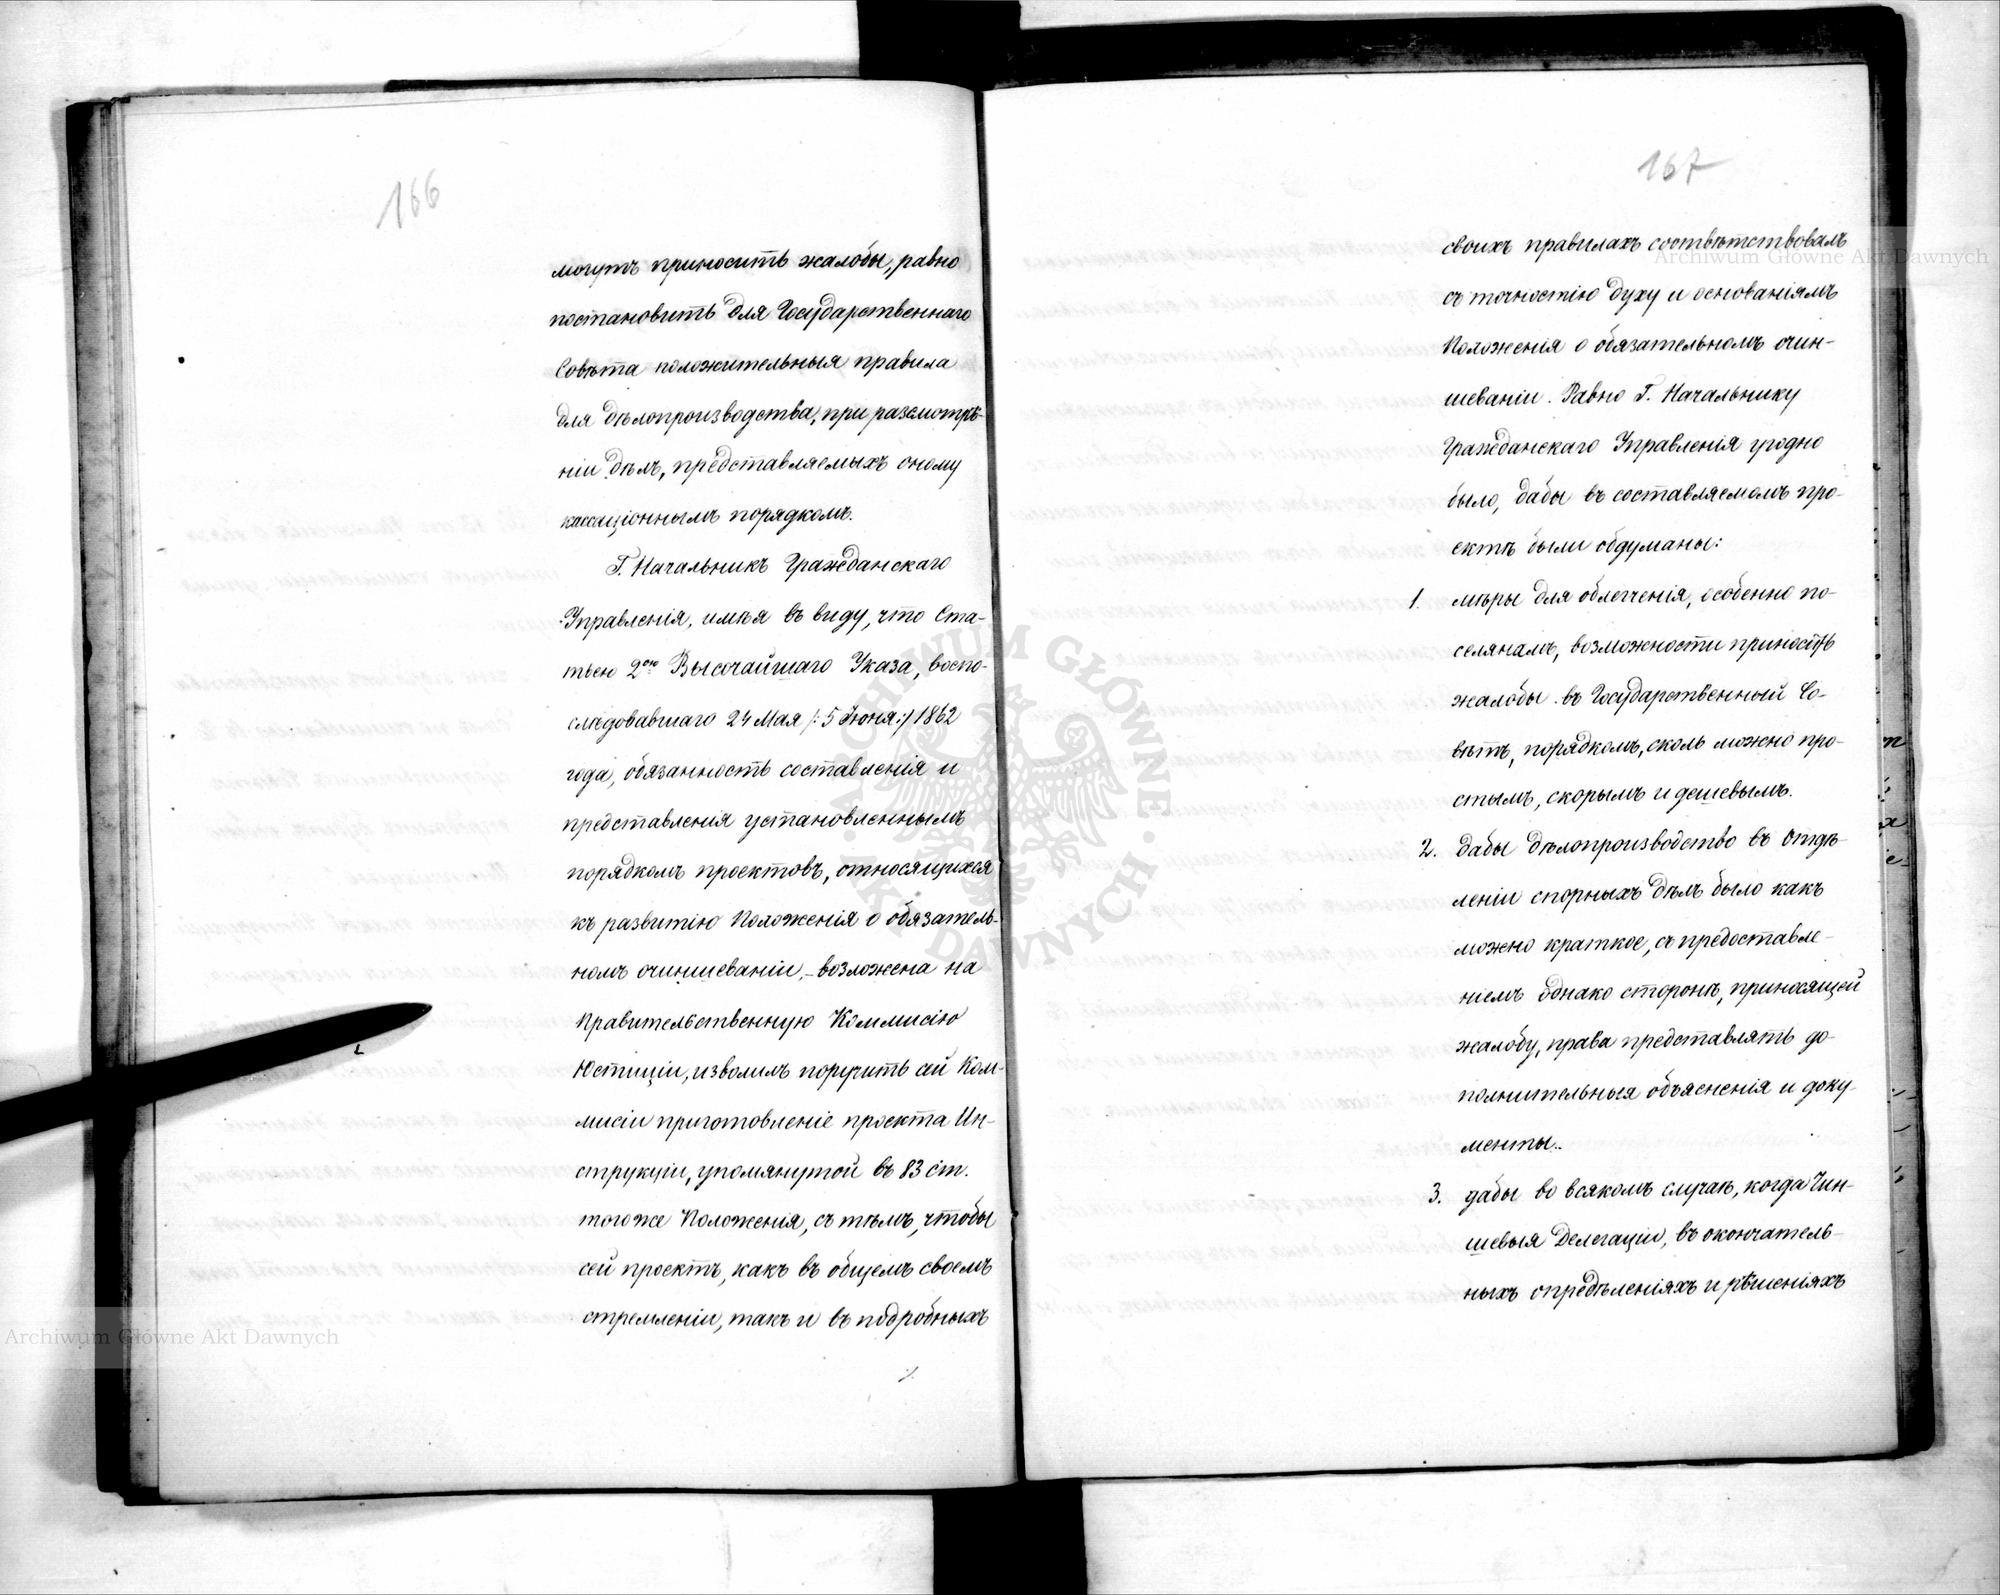 166
могутъ приносить жалобы, равно
постановить для Государственнаго
Совѣта положительныя правила
для дѣлопроизводства, при разсмотрѣ-
ніи дѣлъ, представляемыхъ оному
кассаціоннымъ порядкомъ.
Г. Начальникъ Гражданскаго
Управленія, имѣя въ виду, что Ста-
тьею 2ою Высочайшаго Указа, воспо-
слѣдовавшаго 24 Мая /:5 Іюня:/ 1862
года, обязанность составленія и
представленія установленнымъ
порядкомъ проектовъ, относящихся
къ развитію Положенія о обязатель-
номъ очиншеваніи,- возложена на
Правительственную Коммисію
Юстиціи, изволилъ поручить сей Ком-
мисіи приготовленіе проекта Ин-
струкціи, упомянутой въ 83 ст.
тогоже Положенія, съ тѣмъ, чтобы
сей проектъ, какъ въ общемъ своемъ
стремленіи, такъ и въ подробныхъ
./.
167
своихъ правилахъ соотвѣтствовалъ
съ точностію духу и основаніямъ
Положенія о обязательномъ очин-
шеваніи. Равно Г. Начальнику
Гражданскаго Управленія угодно
было, дабы въ составляемомъ про-
ектѣ были обдуманы:
1. мѣры для облегченія, особенно по-
селянамъ, возможности приносить
жалобы въ Государственный Со-
вѣтъ, порядкомъ, сколь можно про-
стымъ, скорымъ и дешевымъ.
2. дабы дѣлопроизводство въ Отдѣ-
леніи спорныхъ дѣлъ было какъ
можно краткое, съ предоставле-
ніемъ однако сторонѣ, приносящей
жалобу, права представлять до-
полнительныя объясненія и доку-
менты..
3. дабы во всякомъ случаѣ, когда Чин-
шевыя Делегаціи, въ окончатель-
ныхъ опредѣленіяхъ и рѣшеніяхъ
Archiwum Główne Akt Dawnych
Archiwum Główne Akt Dawnych
ARCHIWUM GŁÓWNE · AKT DAWNYCH ·